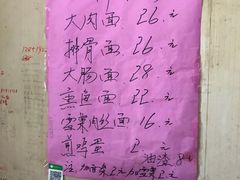 大肉面 26.元
排骨面 26.元
大肠面 28.元
熏鱼面 22.元
雪菜肉丝面 16.元
煎鸡蛋 2元
油渣 8元